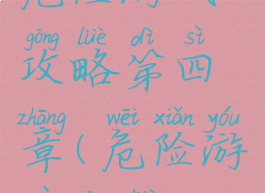 危险游戏
gōng lüè dì sì
攻略第四
zhāng wēi xiǎn yóu
章(危险游